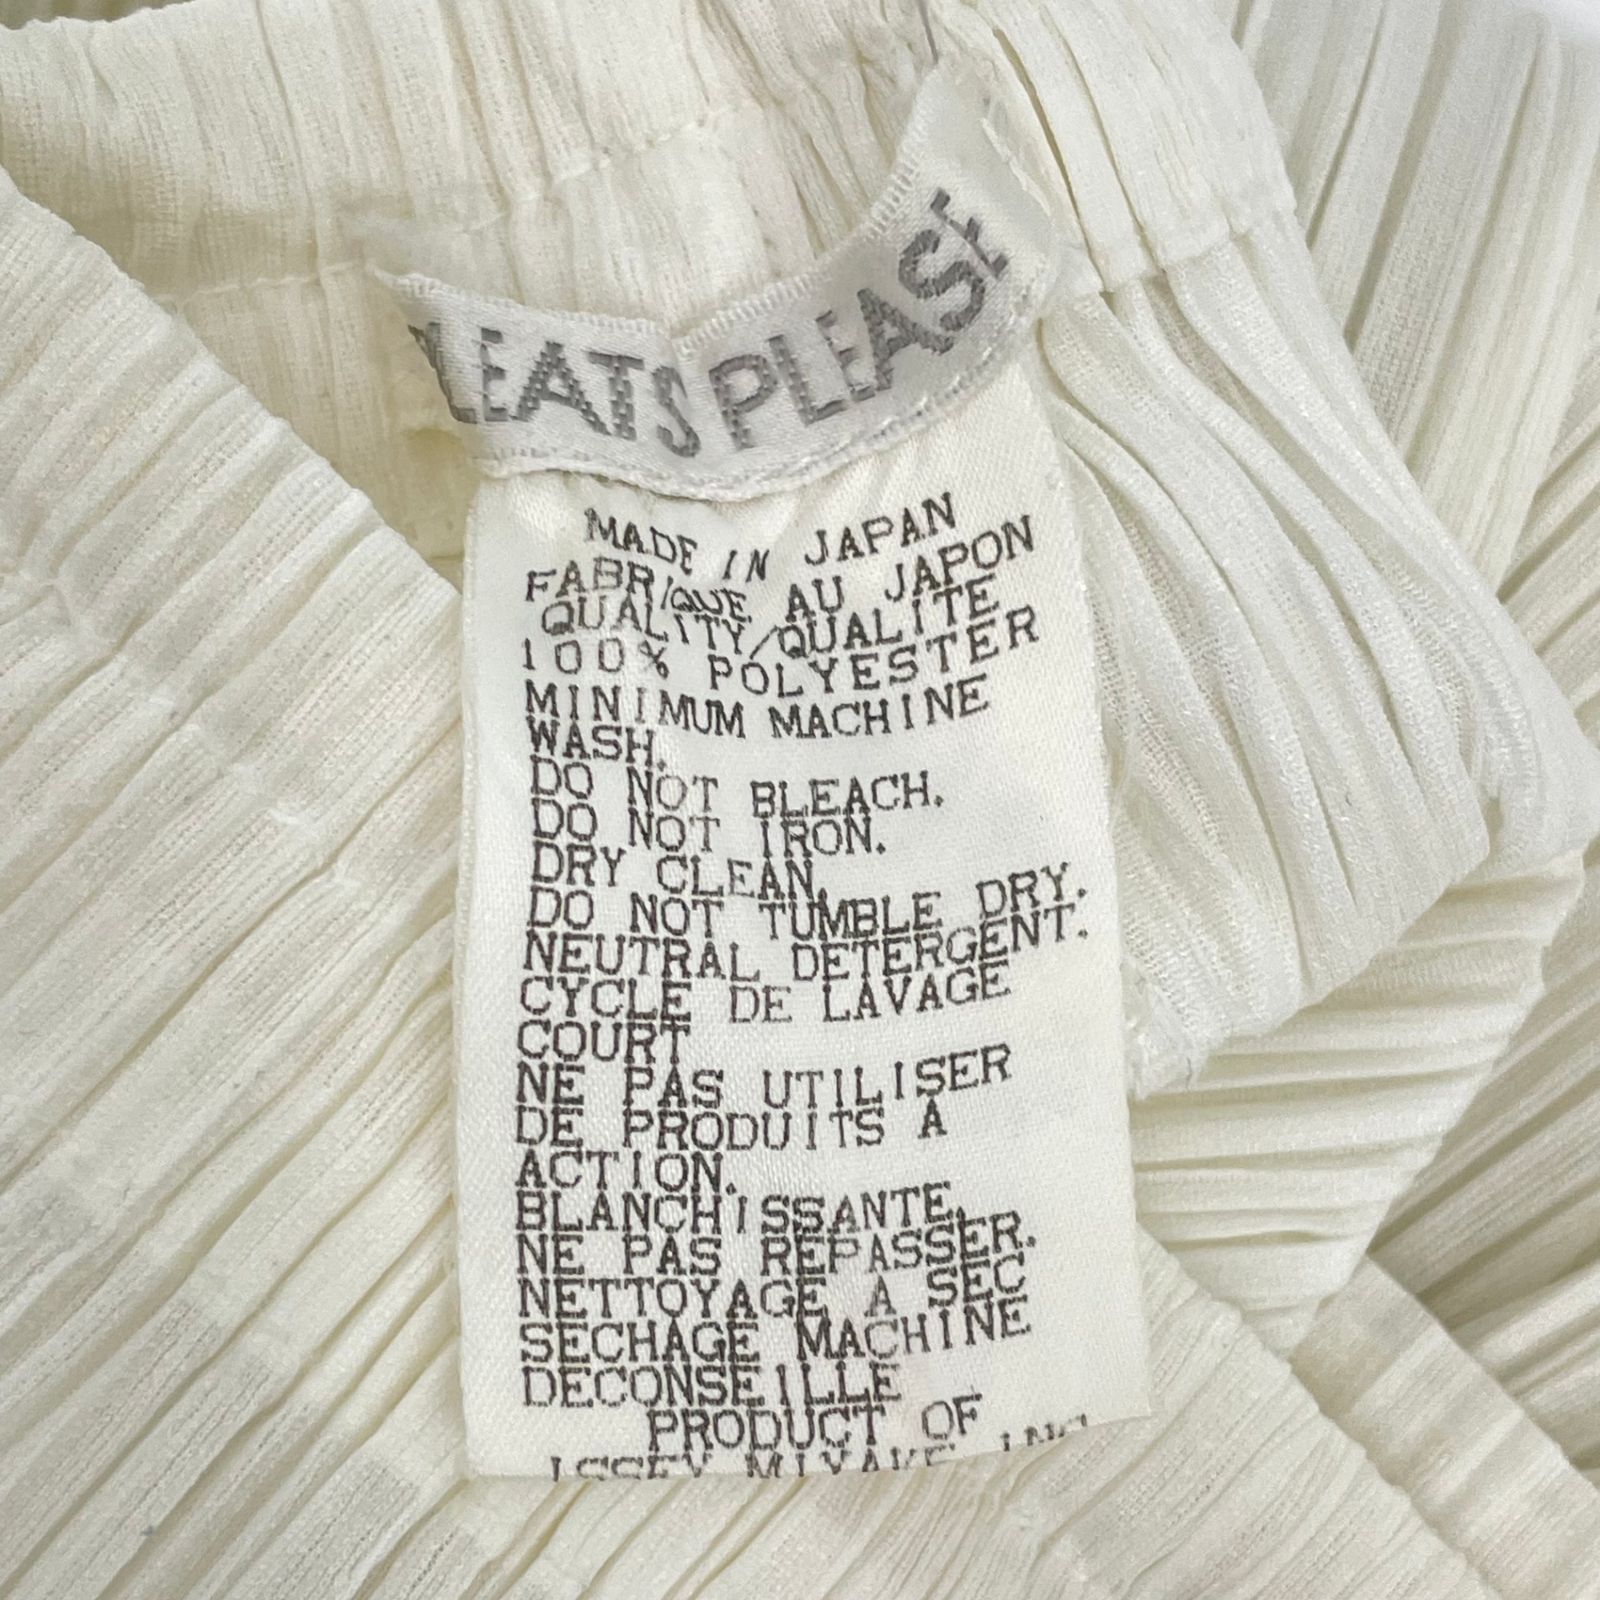 PLEATS PLEASE
MADE IN JAPAN
FABRIQUE AU JAPON
QUALITY/QUALITE
100% POLYESTER
MINIMUM MACHINE
WASH.
DO NOT BLEACH.
DO NOT IRON.
DRY CLEAN.
DO NOT TUMBLE DRY.
NEUTRAL DETERGENT.
CYCLE DE LAVAGE
COURT
NE PAS UTILISER
DE PRODUITS A
ACTION.
BLANCHISSANTE.
NE PAS REPASSER.
NETTOYAGE A SEC
SECHAGE MACHINE
DECONSEILLE
PRODUCT OF
ISSEY MIYAKE INC